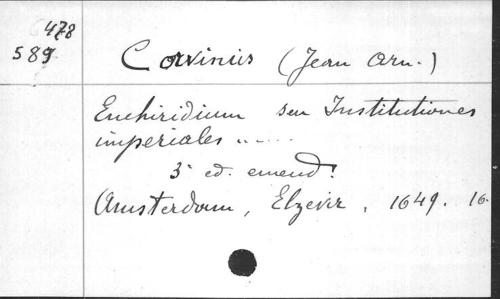 478
589
Corvinus (Jean Arn.)
Enchiridium seu Institutiones
imperiales ......
3e ed. emend.
Amsterdam, Elzevir, 1649. 16.